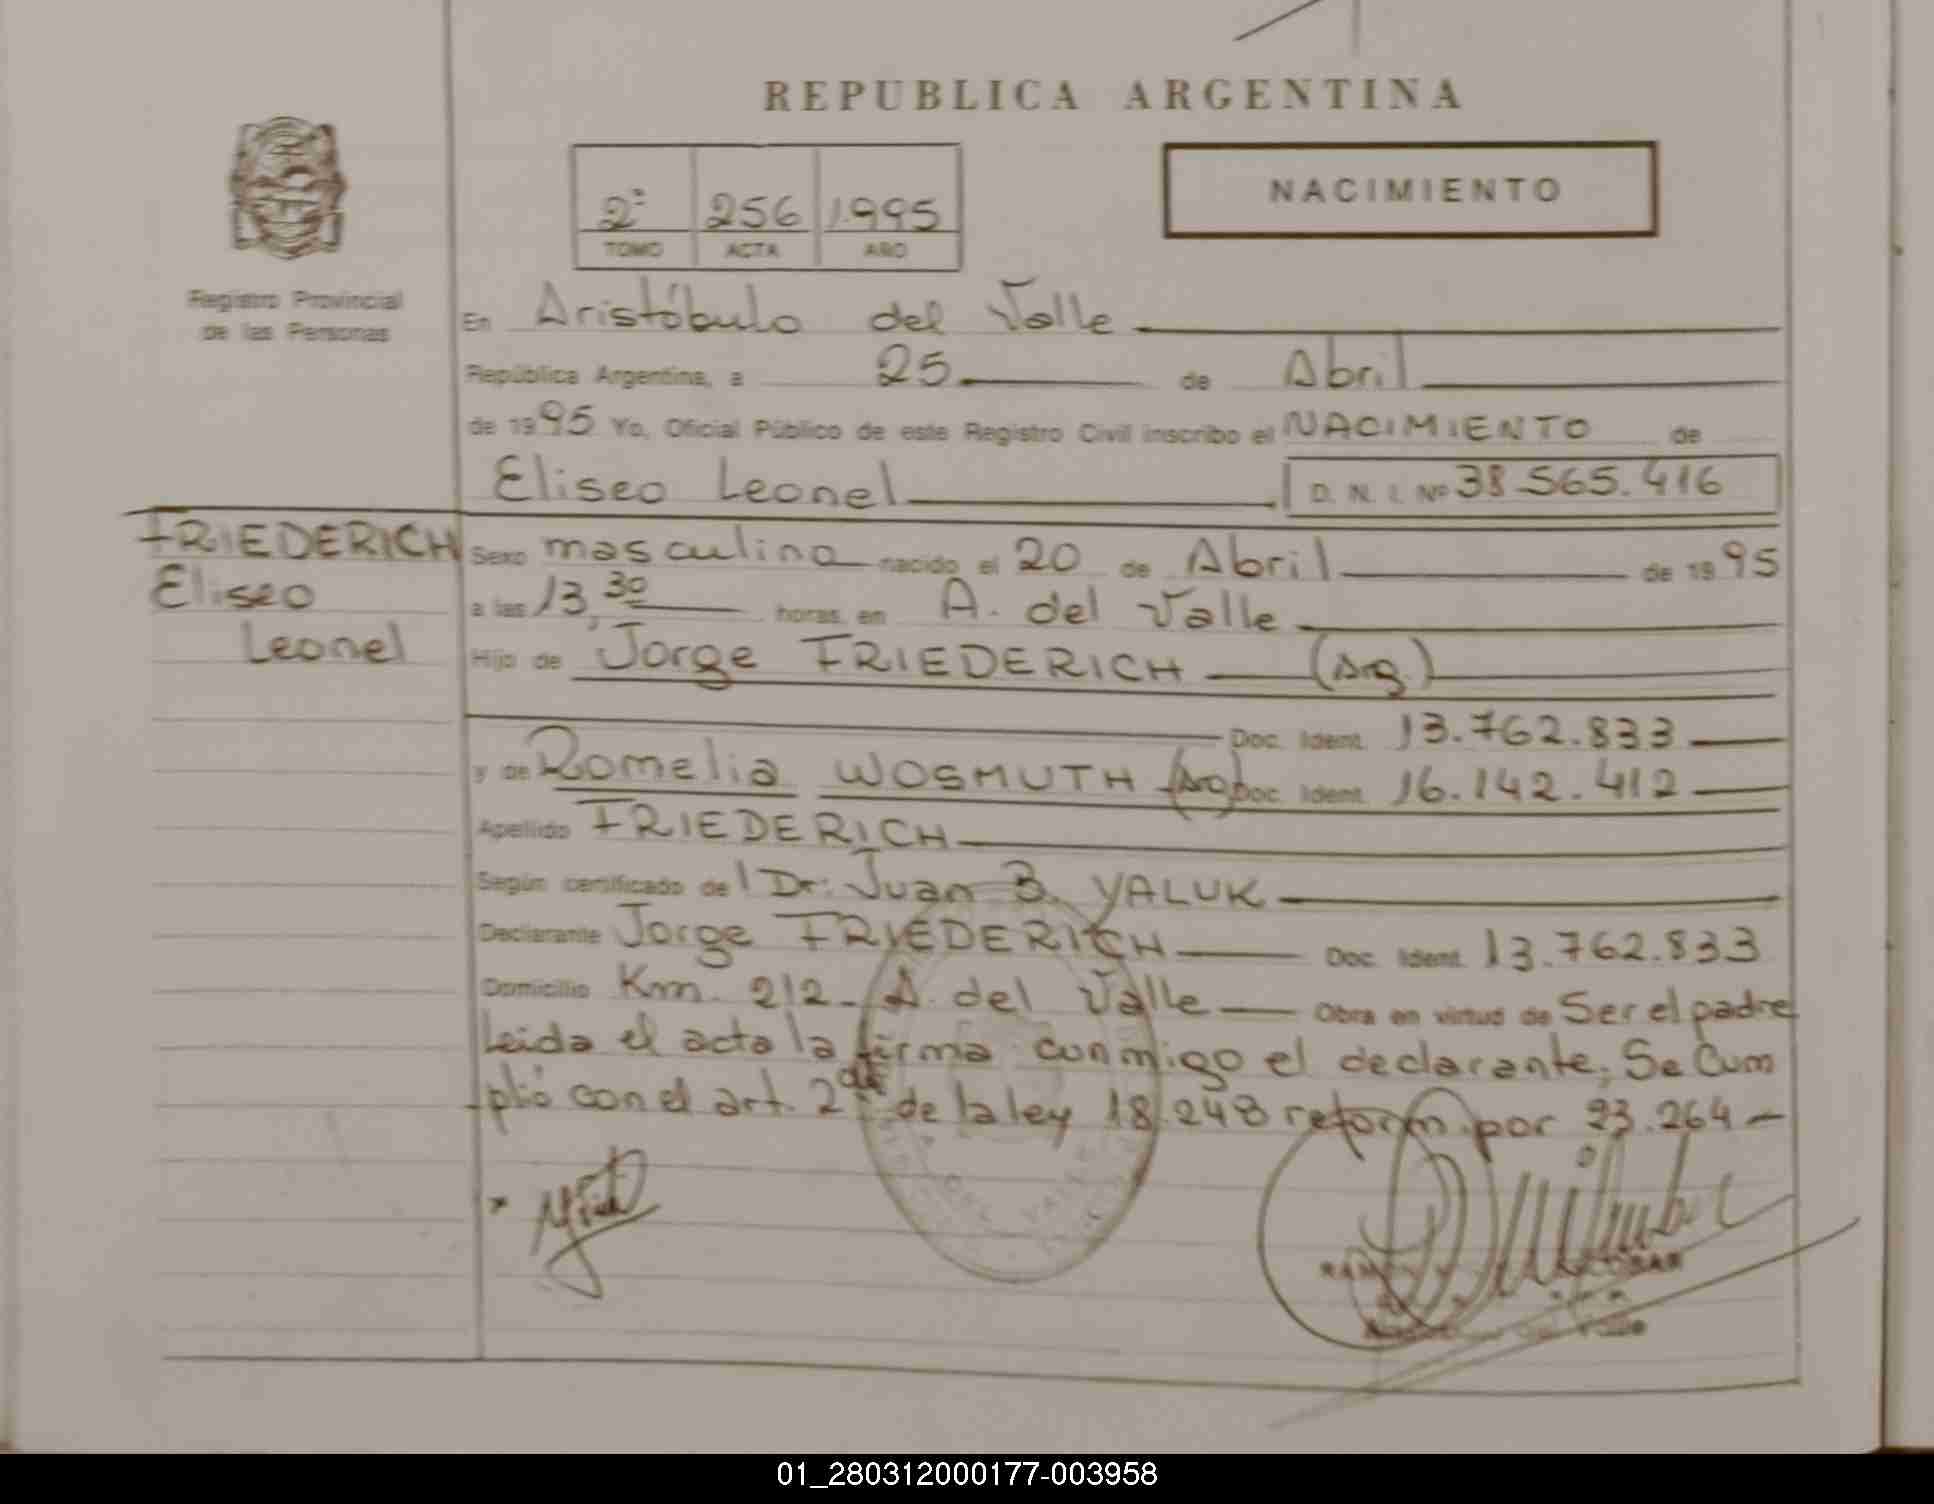 REPUBLICA ARGENTINA
2º 256 1995
TOMO ACTA AÑO
NACIMIENTO
Registro Provincial
de las Personas
En Aristóbulo del Valle
República Argentina, a 25 de Abril
de 1995 Yo, Oficial Público de este Registro Civil inscribo el NACIMIENTO de
Eliseo Leonel D. N. I. Nº 38.565.416
FRIEDERICH
Eliseo
Leonel
Sexo masculino nacido el 20 de Abril de 1995
a las 13,30 horas, en A. del Valle
Hijo de Jorge FRIEDERICH (Arg.)
Doc. Ident. 13.762.833
y de Romelia WOSMUTH (Arg) Doc. Ident. 16.142.412
Apellido FRIEDERICH
Según certificado del Dr: Juan B. YALUK
Declarante Jorge FRIEDERICH Doc. Ident. 13.762.833
Domicilio Km. 212 - A. del Valle Obra en virtud de Ser el padre
Leida el acta la firma conmigo el declarante; Se Cum
plió con el art. 2 de la ley 18.248 reform. por 23.264 -
01_280312000177-003958